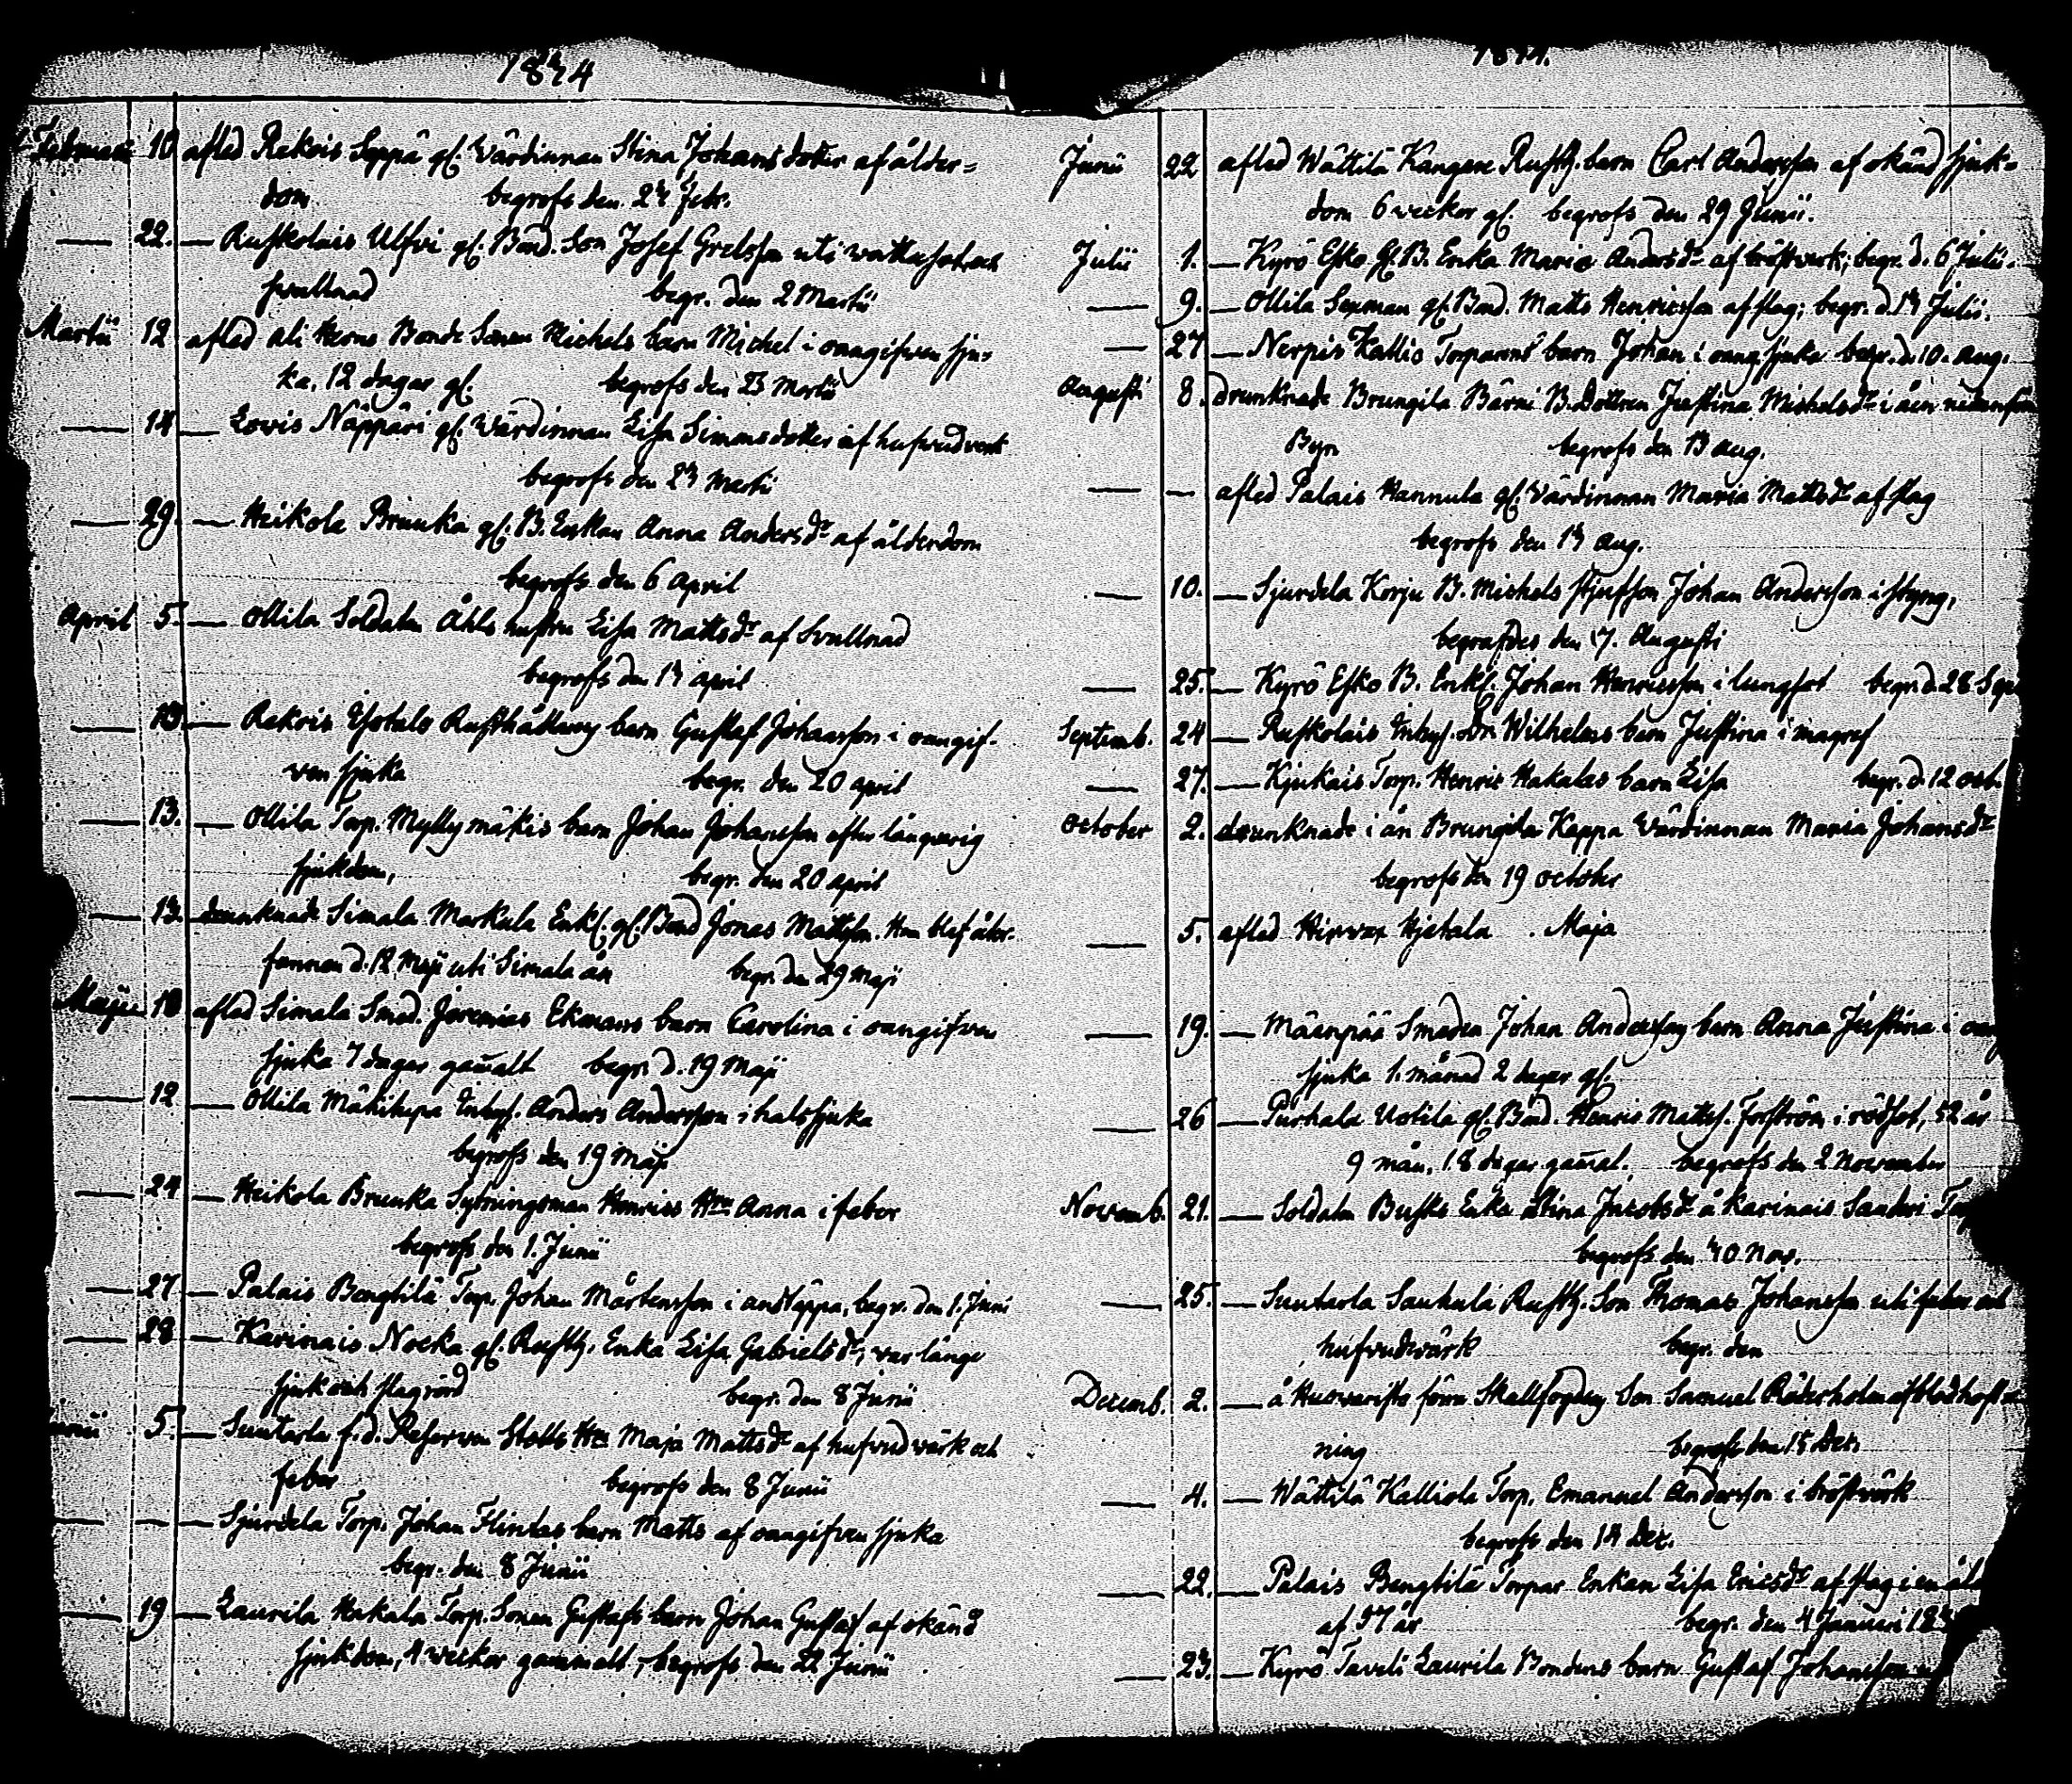 1824
Februarii 10 afled Rekois Seppä gl. Värdinnan Stina Johansdotter af ålder=
dom begrofs den 24 Febr.
22. — Ruskolais Ulfvi gl. Bond. Son Josef Grelsson uti vattusot och
svullnad begr. den 2 Martii
Martii 12 afled Ali Herno Bonde Sonen Michels barn Michel i oangifven sju=
ka, 12 dagar gl. begrofs den 23 Martii
— 14 — Lovis Näppäri gl. Värdinnan Lisa Simonsdotter af hufvudverk
begrofs den 24 Martii
— 29. — Heikola Brunka gl. B. Enkan Anna Andersdr af ålderdom
begrofs den 6 April
April 5. — Ollila Soldaten Åhls hustru Lisa Mattsdr af Svullnad
begrofs den 14 april
— — Rekois barn Gustaf Johansson i oangif-
ven sjuka begr. den 20 april
— 13. — Ollila Torp. Myllymäkis barn Johan Johansson efter långvarig
sjukdom, begr. den 20 april
— 13. drunknade Simala Markula Enkl. gl. Bond Jonas Mattsson. Han blef åter-
funnen d. 12 Maji uti Simala ån begr. den 29 Maji
Maji 10 afled Simala Smed. Jeremias Ekmans barn Carolina i oangifven
sjuka 7 dagar gamalt begr. d. 19 Maji
— 12 — Ollila Inhys. Anders Andersson i halssjuka
begrofs den 19 Maji
— 24 — Heikola Brunka Sytningsman Henrics Hru Anna i feber
begrofs den 1. Junii
— 27 — Palais Bengtilä Torp. Johan Mårtensson i andtäppa, begr. den 1. Juni
— 28 — Karinais Nocka gl. Rusth. Enka Lisa Gabrielsdr, var länge
sjuk och slagrörd begr. den 8 Junii
5. — Suutarla f.d. Reserven Hru Maja Mattsdr af hufvudvärk och
feber begrofs den 8 Junii
— — — Sjurdela Torp. Johan Flintas barn Matts af oangifven sjuka
begr. den 8 Junii
— 19 — Laurila Hakala Torp. Sonen Gustafs barn Johan Gustaf af okänd
sjukdom, 4 veckor gammalt, begrofs den 22 Junii
Junii 22 afled Wättilä Kangare Rusth. barn Carl Andersson af okänd sjuk=
dom 6 veckor gl. begrofs den 29 Junii.
Julii 1. — Kyrö Esko gl. B. Enka Maria Andersdr af bröstverk; begr. d. 6 Julii.
— 9. — Ollila Sexman gl. Bond. Matts Henricsson af slag; begr. d. 14 Julii.
— 27 — Nerpis Kallis Torparens barn Johan i oang. sjuka begr. d. 10. aug.
Augusti 8. drunknade Brungila Bärni B. Dottren Justina Michelsdr i åen nedanför
Byn begrofs den 13 aug.
— — afled Palais Hannula gl. Värdinnan Maria Mattsdr af slag
begrofs den 14 aug.
— 10. — Sjurdela Korju B. Michels Styfson Johan Andersson i styng,
begrafdes den 17. Augusti
— 25. — Kyrö Esko B. Enkl. Johan Henricsson i lungsot begr. d. 28
Septemb. 24 — Ruskolais Inhys. Wilhelms barn Justina i magref
— 27. — Kjukais Torp. Henric Hakalas barn Lisa begr. d. 12 oct.
October 2. drunknade i ån Brungila Kappa Värdinnan Maria Johansdr
begrofs den 19 october
— 5. afled Hirvax Hjetala Maja
— 19. — Mäenpää Smeden Johan Anderssons barn Anna Justina i
sjuka 1. månad 2 dagar gl.
— 26 — Purhala Uotila gl. Bond. Henric Matts. Forström i rödsot, 52 år
9 mån. 18 dagar gamal. begrofs den 2 November
Novemb. 21. — Soldaten Busks Enka Stina Jacobsdr å Karinais Sanderi
begrofs den 30 Nov.
— 25. — Suutarla Saukula Rusth. Son Thomas Johansson uti feber och
hufvudvärk begr. den
Decemb. 2. — å förra Skallfogdens Son Samuel af blodhost-
ning begrofs den 15 Dec.
— 4. — Wättilä Kalliola Torp. Emanuel Andersson i bröstvärk
begrofs den 14 Dec.
— 22. — Palais Bengtilä Torpar Enkan Lisa Ericsdr af slag i en
af 97 år begr. den 4 Januari
— 23. — Kyrö Taveli Laurila Bondens barn Gustaf Johansson